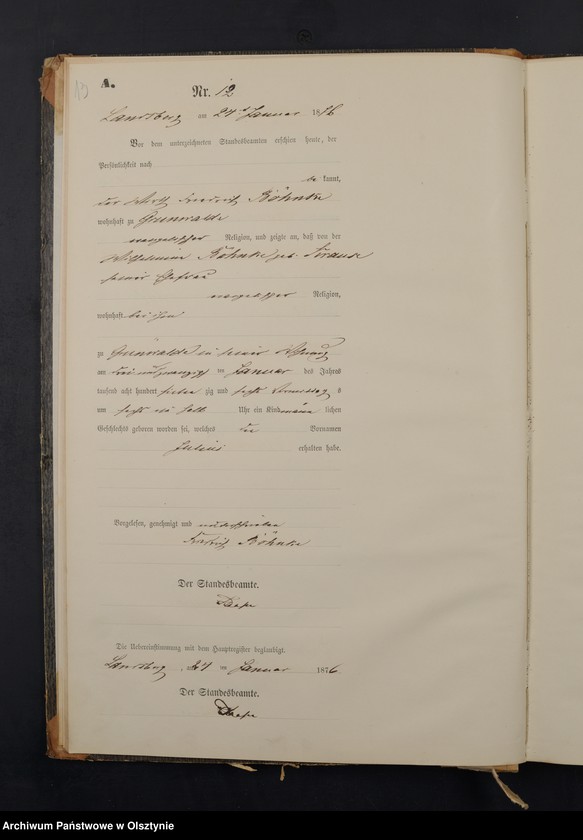 13
A.
Nr. 12
Landsberg am 24t Januar 1876
Vor dem unterzeichneten Standesbeamten erschien heute, der
Persönlichkeit nach
be kannt,
der Friedrich Böhnke
wohnhaft zu Grünwalde
evangelischer Religion, und zeigte an, daß von der
Wilhelmine Böhnke geb.
seiner Ehefrau
evangelischer Religion,
wohnhaft bei ihm
zu Grünwalde in seiner Wohnung
am drei und zwanzigsten Januar des Jahrs
tausend acht hundert sieben zig und sechs Vormittag s
um sechs ein halb Uhr ein Kind männ lichen
Geschlechts geboren worden sei, welches den Vornamen
Julius erhalten habe.
Vorgelesen, genehmigt und unterschrieben
Friedrich Böhnke
Der Standesbeamte.
Die Uebereinstimmung mit dem Hauptregister beglaubigt.
Landsberg 24 ten Januar 1876.
Der Standesbeamte.
Archiwum Państwowe w Olsztynie